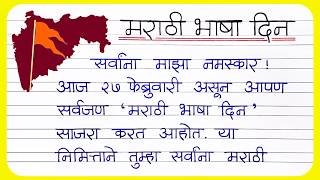 मराठी भाषा दिन
सर्वांना माझा नमस्कार !
आज २७ फेब्रुवारी असून आपण
सर्वजण ‘मराठी भाषा दिन’
साजरा करत आहोत. या
निमित्ताने तुम्हा सर्वांना मराठी